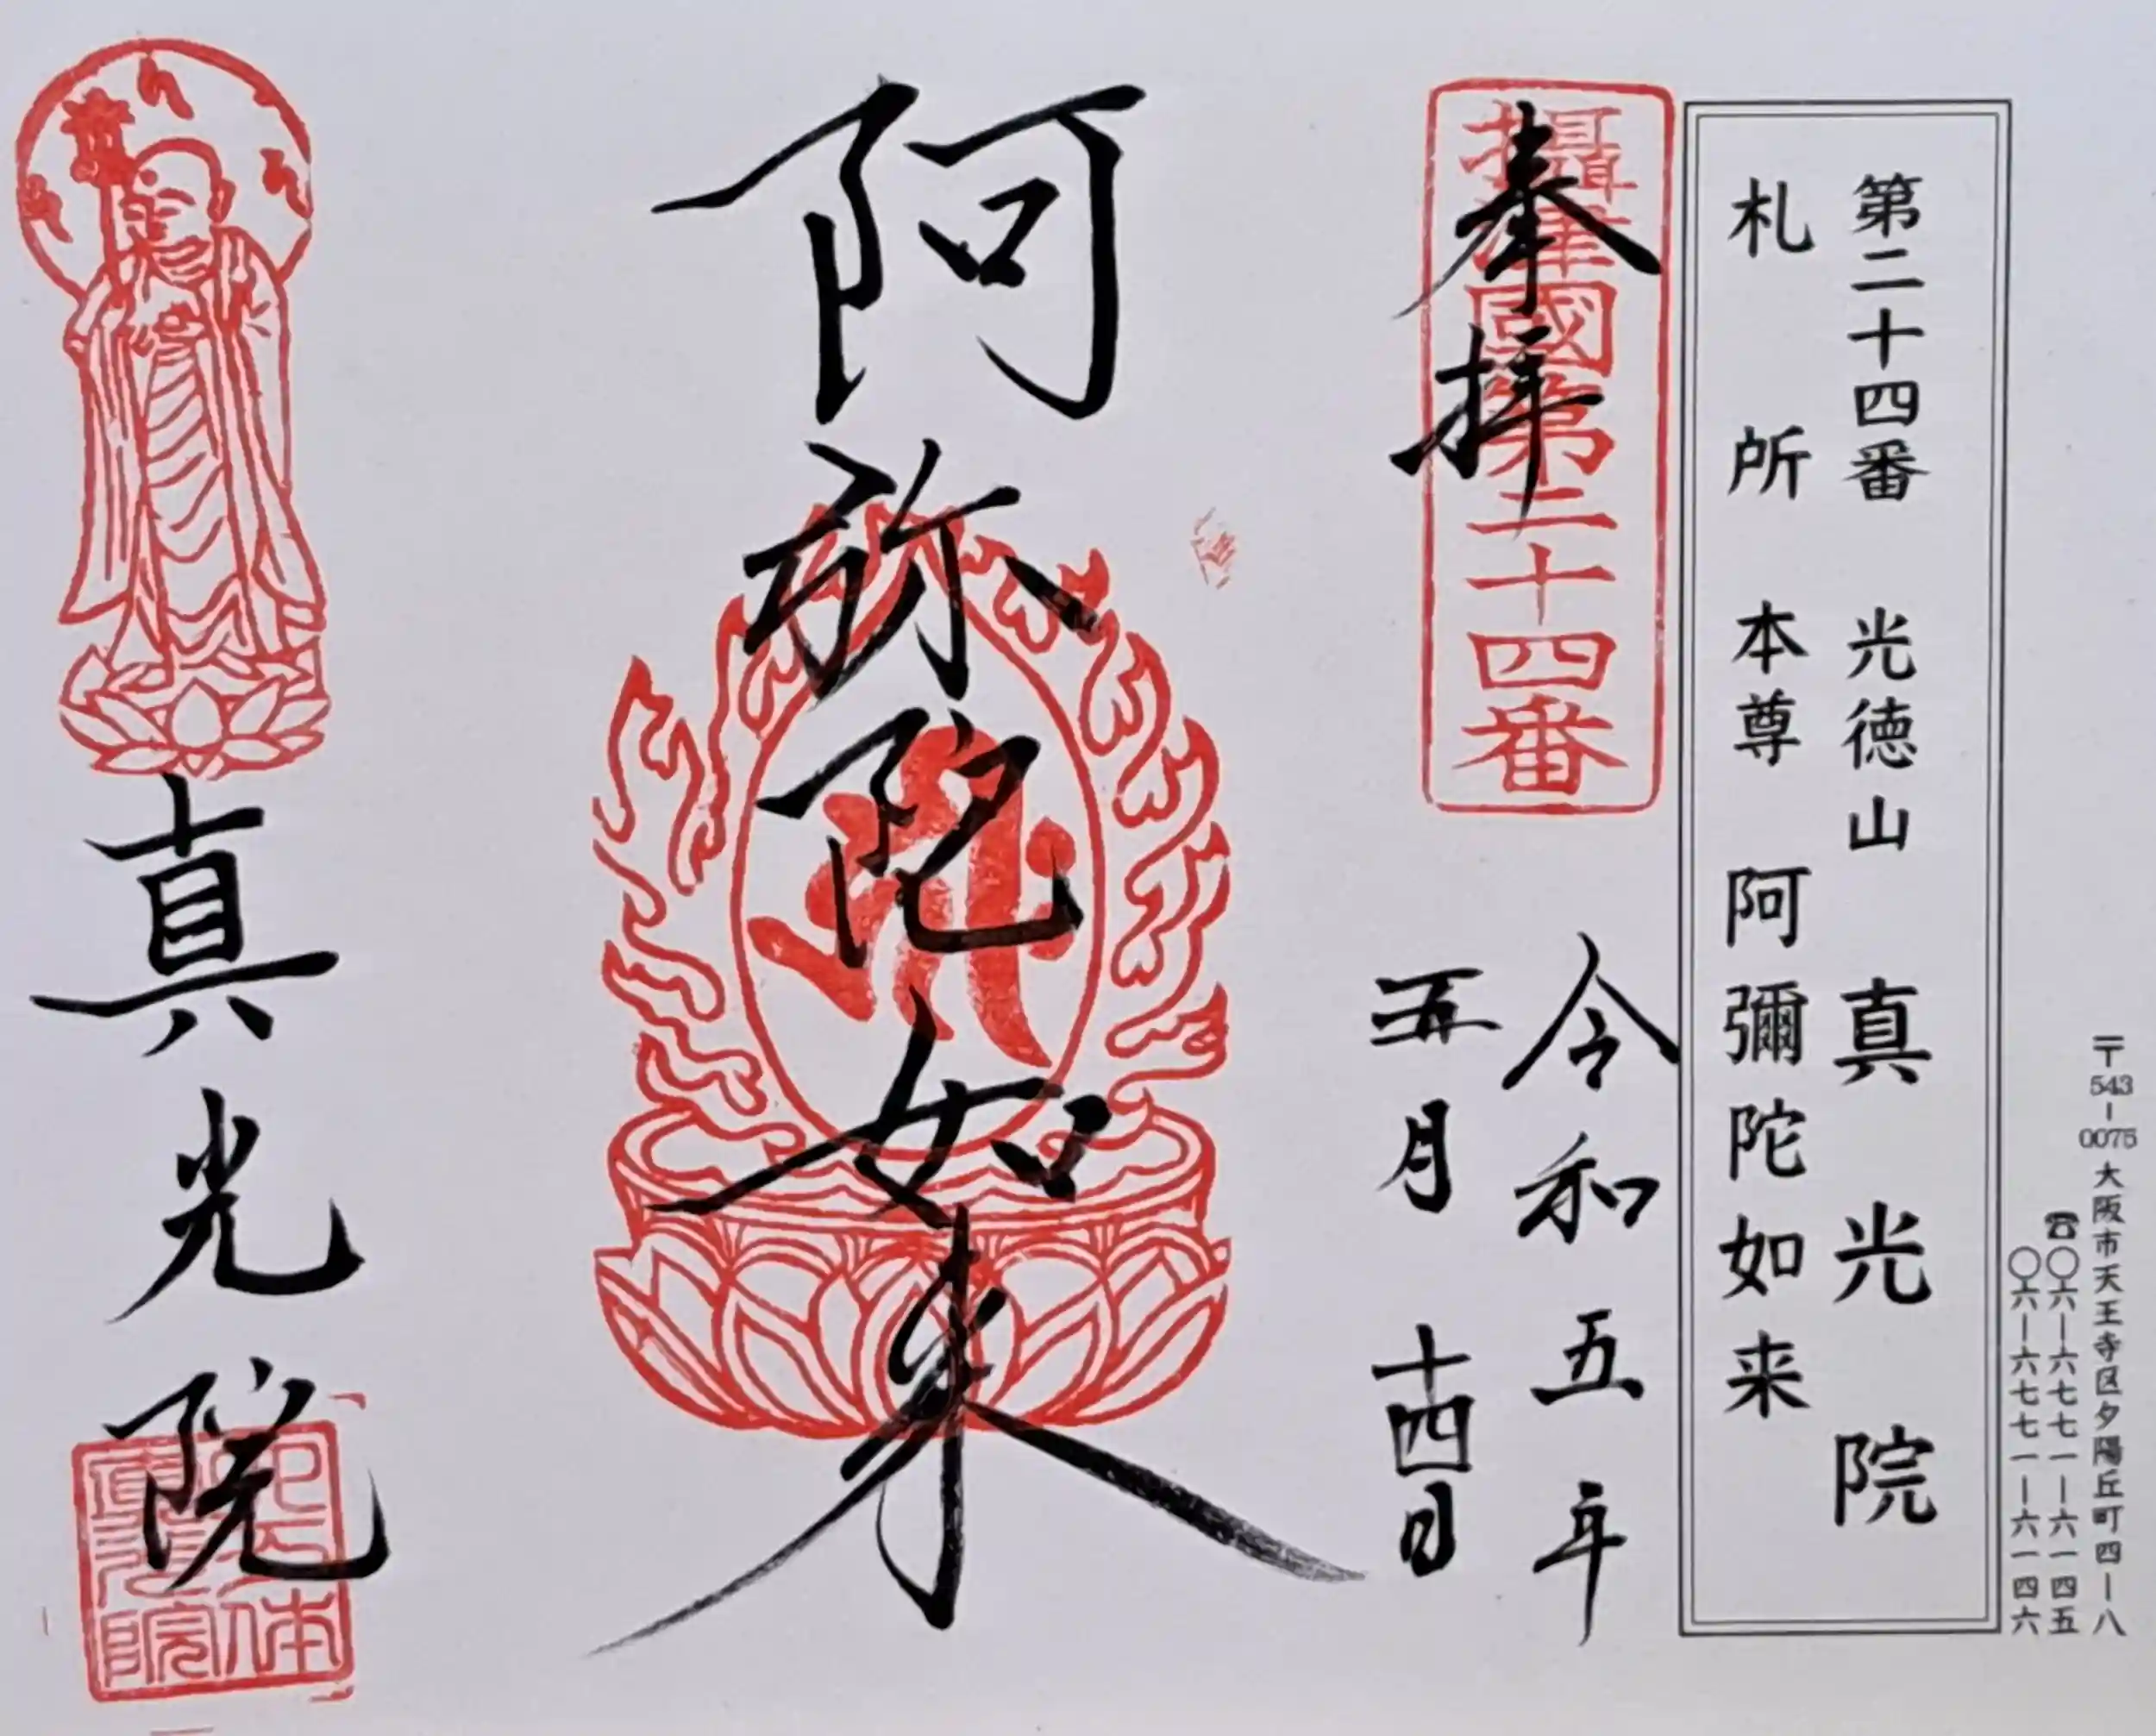 〒543-0075 大阪市天王寺区夕陽丘町四-八
☎〇六-六七七一-六一四五
〇六-六七七一-六一四六
第二十四番 光徳山 真光院
札所本尊 阿彌陀如来
攝津國第二十四番
奉拝
令和五年
五月十四日
阿弥陀如来
真光院